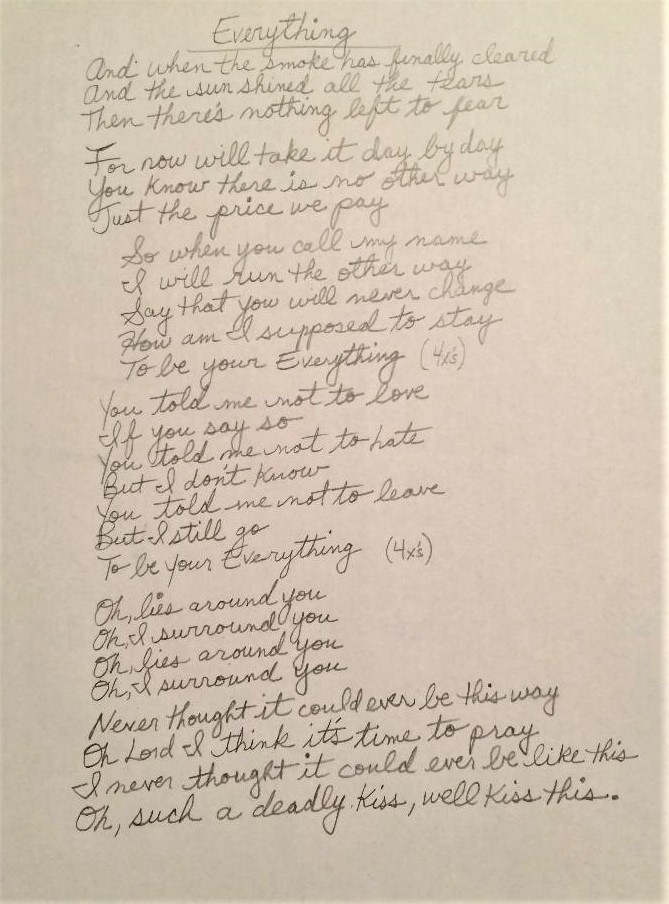 Everything
And when the smoke has finally cleared
And the sun shined all the tears
Then there's nothing left to fear
For now will take it day by day
You know there is no other way
Just the price we pay
So when you call my name
I will run the other way
Say that you will never change
How am I supposed to stay
To be your Everything (4x's)
You told me not to love
If you say so
You told me not to hate
But I don't know
You told me not to leave
But I still go
To be your Everything (4x's)
Oh, lies around you
Oh, I surround you
Oh, lies around you
Oh, I surround you
Never thought it could ever be this way
Oh Lord I think it's time to pray
I never thought it could ever be like this
Oh, such a deadly kiss, well kiss this.